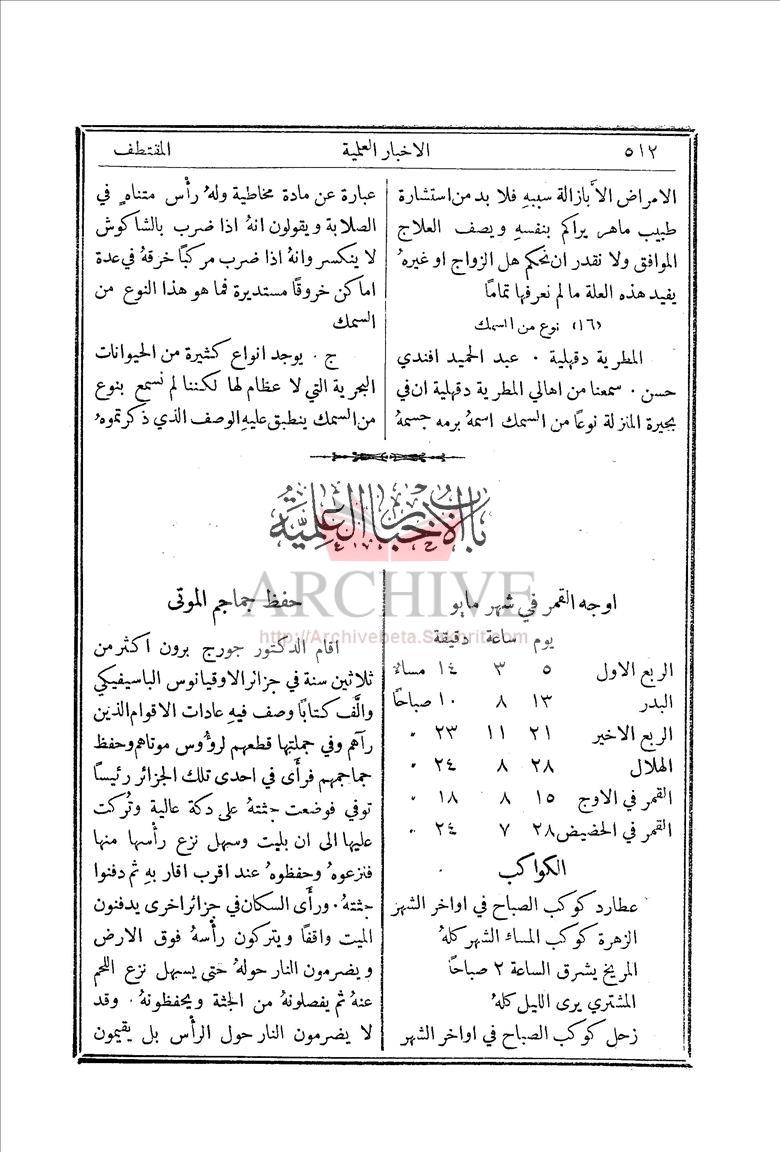 ٥١٢
الاخبار العلمية
المقتطف
الامراض الأبازالة سببهِ فلا بد من استشارة
طبيب ماهر يراكم بنفسهِ ويصف العلاج
الموافق ولا نقدر ان نحكم هل الزواج او غيرهُ
يفيد هذه العلة ما لم نعرفها تمامًا
(١٦) نوع من السمك
المطرية دقهلية . عبد الحميد افندي
حسن . سمعنا من اهالي المطرية دقهلية ان في
بحيرة المنزلة نوعًا من السمك اسمهُ برمه جسمهُ
عبارة عن مادة مخاطية ولهُ رأس متناهٍ في
الصلابة ويقولون انهُ اذا ضرب بالشاكوش
لا ينكسر وانهُ اذا ضرب مركبًا خرقهُ في عدة
اماكن خروقًا مستديرة فما هو هذا النوع من
السمك
ج . يوجد انواع كثيرة من الحيوانات
البحرية التي لا عظام لها لكننا لم نسمع بنوع
من السمك ينطبق عليهِ الوصف الذي ذكرتموهُ
باب الاخبار العلمية
اوجه القمر في شهر مايو
يوم ساعة دقيقة
الربع الاول ٥ ٣ ١٤ مساءً
البدر ١٣ ٨ ١٠ صباحًا
الربع الاخير ٢١ ١١ ٢٣ "
الهلال ٢٨ ٨ ٢٤ "
القمر في الاوج ١٥ ٨ ١٨ "
القمر في الحضيض ٢٨ ٧ ٢٤ "
الكواكب
عطارد كوكب الصباح في اواخر الشهر
الزهرة كوكب المساء الشهر كلهُ
المريخ يشرق الساعة ٢ صباحًا
المشتري يرى الليل كلهُ
زحل كوكب الصباح في اواخر الشهر
حفظ جماجم الموتى
اقام الدكتور جورج برون اكثر من
ثلاثين سنة في جزائر الاوقيانوس الباسيفيكي
والَّف كتابًا وصف فيهِ عادات الاقوام الذين
رآهم وفي جملتها قطعهم لرؤوس موتاهم وحفظ
جماجمهم فرأى في احدى تلك الجزائر رئيسًا
توفي فوضعت جثتهُ على دكة عالية وتُركت
عليها الى ان بليت وسهل نزع رأسها منها
فنزعوهُ وحفظوهُ عند اقرب اقاربهِ ثم دفنوا
جثتهُ . ورأى السكان في جزائر اخرى يدفنون
الميت واقفًا ويتركون رأسهُ فوق الارض
ويضرمون النار حولهُ حتى يسهل نزع اللحم
عنهُ ثم يفصلونهُ من الجثة ويحفظونهُ . وقد
لا يضرمون النار حول الرأس بل يقيمون
ARCHIVE
http://Archivebeta.Sakhrit.com